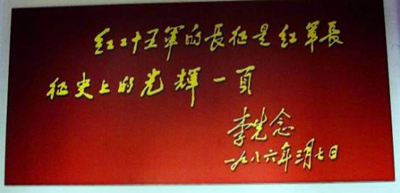 红二十五军的長征是红軍長
征史上的光輝一頁
李先念
一九八六年三月七日